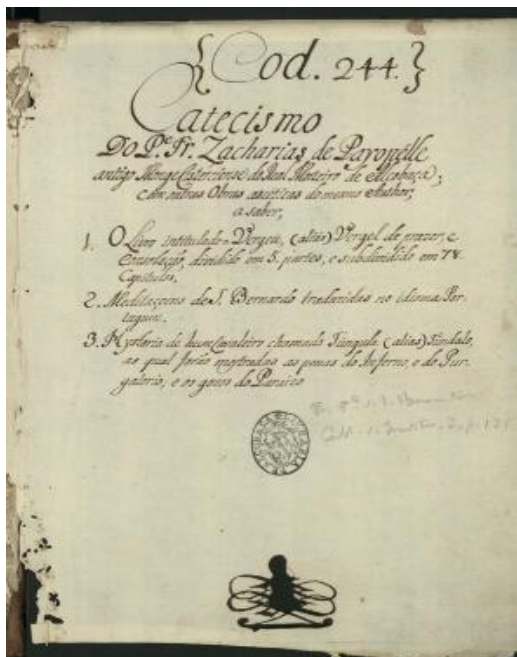 {Cod. 244.}
Catecismo
Do P.e Fr. Zacharias de Payopelle
antigo Monge Cisterciense do Real Mosteiro de Alcobaça;
com outras Obras asceticas do mesmo Author,
a saber,
1. O Livro intitulado Vergeu, (alias) Vergel de prazer, e
Consolação, dividido em 5. partes, e subdividido em 78
Capitulos.
2. Meditaçoens de S. Bernardo traduzidas no idioma Por-
tuguez.
3. Hystoria de hum Cavaleiro chamado Tungulo (alias) Tundalo,
ao qual forão mostradas as penas do Inferno, e do Pur-
gatorio, e os gozos do Paraizo